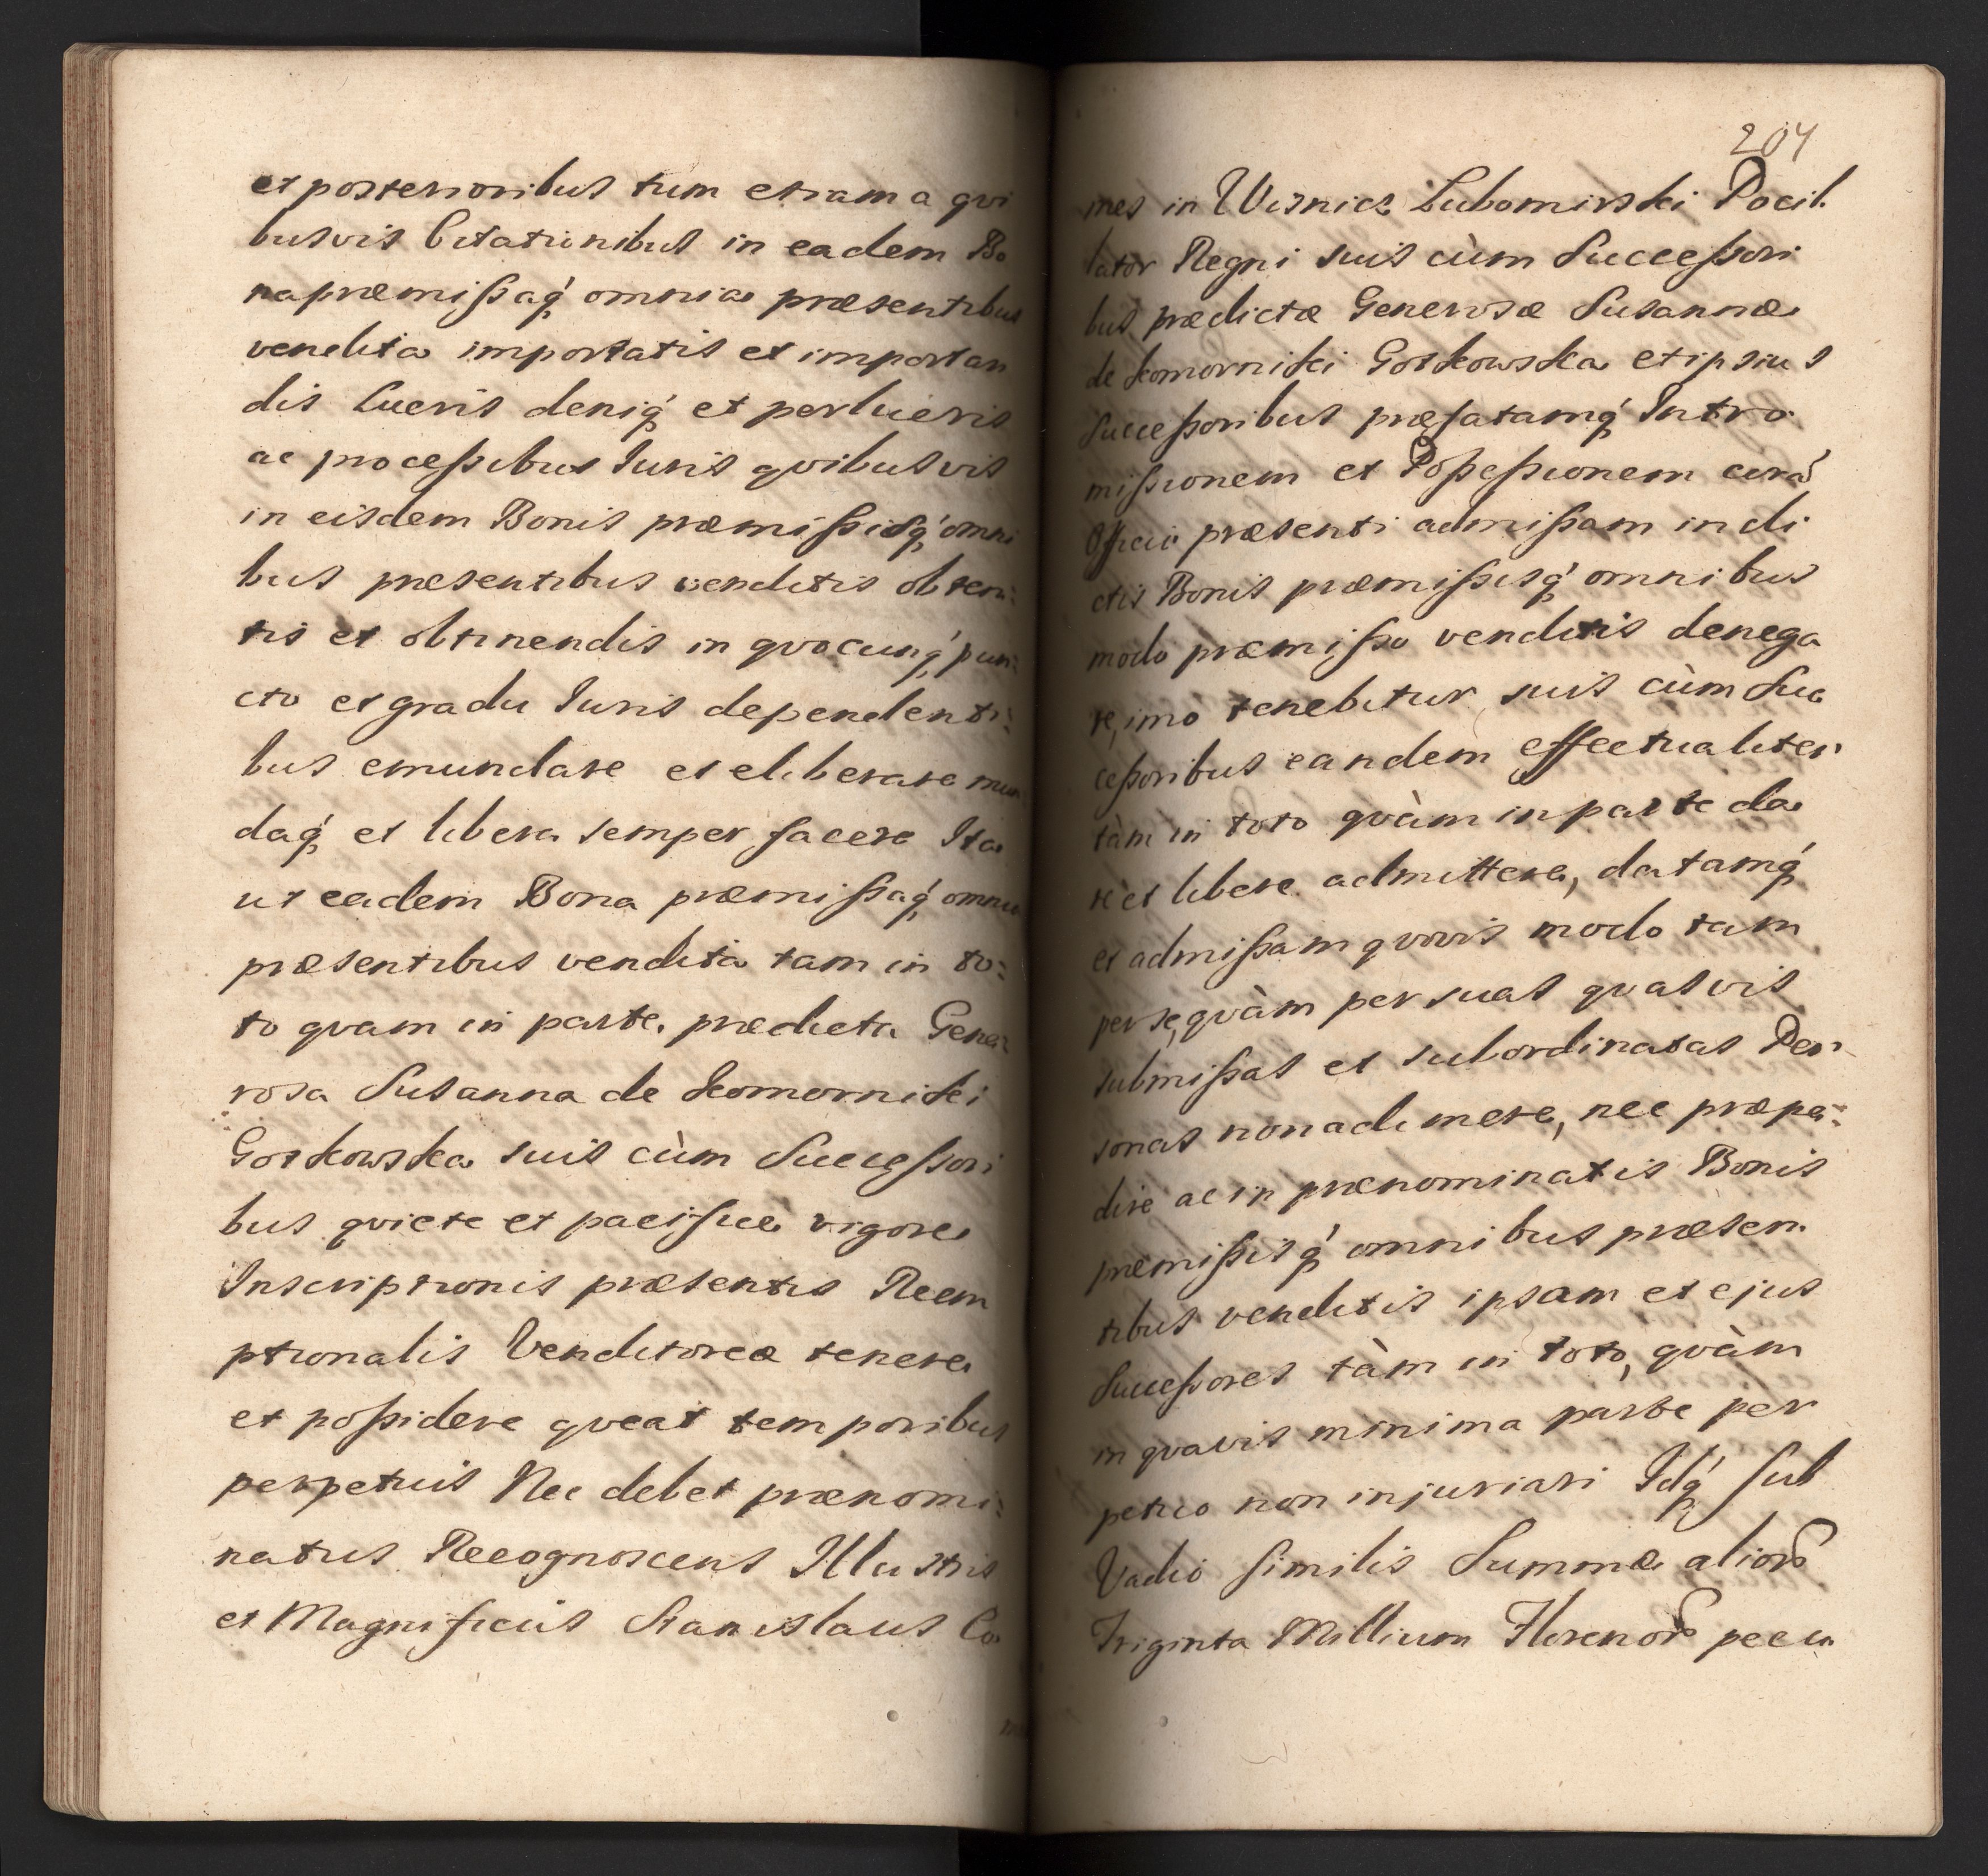 et posterioribus tum etiam a qvi
busvis Citationibus in eadem Bo
na præmissaq́ omnia præsentibus
vendita importatis et importan
dis Lucris deniq́ et perlucris
ac processibus Iuris qvibusvis
in eisdem Bonis præmissisq́ omni
bus præsentibus venditis obten:
tis et obtinendis in qvocunq́ pun:
cto et gradu Iuris dependenti:
bus emundare et eliberare mun
daq́ et libera semper facere Ita
ut eadem Bona præmissaq́ omnia
præsentibus vendita tam in to:
to qvam in parte, prædicta Gene
rosa Susanna de Komorniki
Gorkowska suis cùm Successori
bus qviete et pacificè vigore
Inscriptionis præsentis Reem
ptionalis Venditoreæ tenere
et possidere qveat temporibus
perpetuis Nec debet prænomi:
natus Recognoscens Illustris
et Magnificus Stanislaus Co
204
mes in Wisnicz Lubomirski Pocil.
lator Regni suis cùm Successori
bus prædictæ Generosæ Susannæ
de Komorniki Gorkowska et ipsius
Successoribus præfatamq́ Intro
missionem et Possessionem corã
Officio præsenti admissam in di
ctis Bonis præmissisq́ omnibus
modo præmisso venditis denega
re, imo tenebitur suis cùm Suc
cessoribus eandem effectualiter
tàm in toto qvàm in parte da
re et libere admittere, datamq́
et admissam qvovis modo tam
per se, qvàm per suas qvasvis
submissas et subordinatas Per
sonas non adimere, nec præpe:
dire ac in prænominatis Bonis
præmissisq́ omnibus præsen
tibus venditis ipsam et ejus
Successores tàm in toto, qvàm
in qvavis minima parte per
petuo non injuriari Idq́ sub
Vadio similis Summæ alior̃
Triginta Millium Florenor̃ pecu